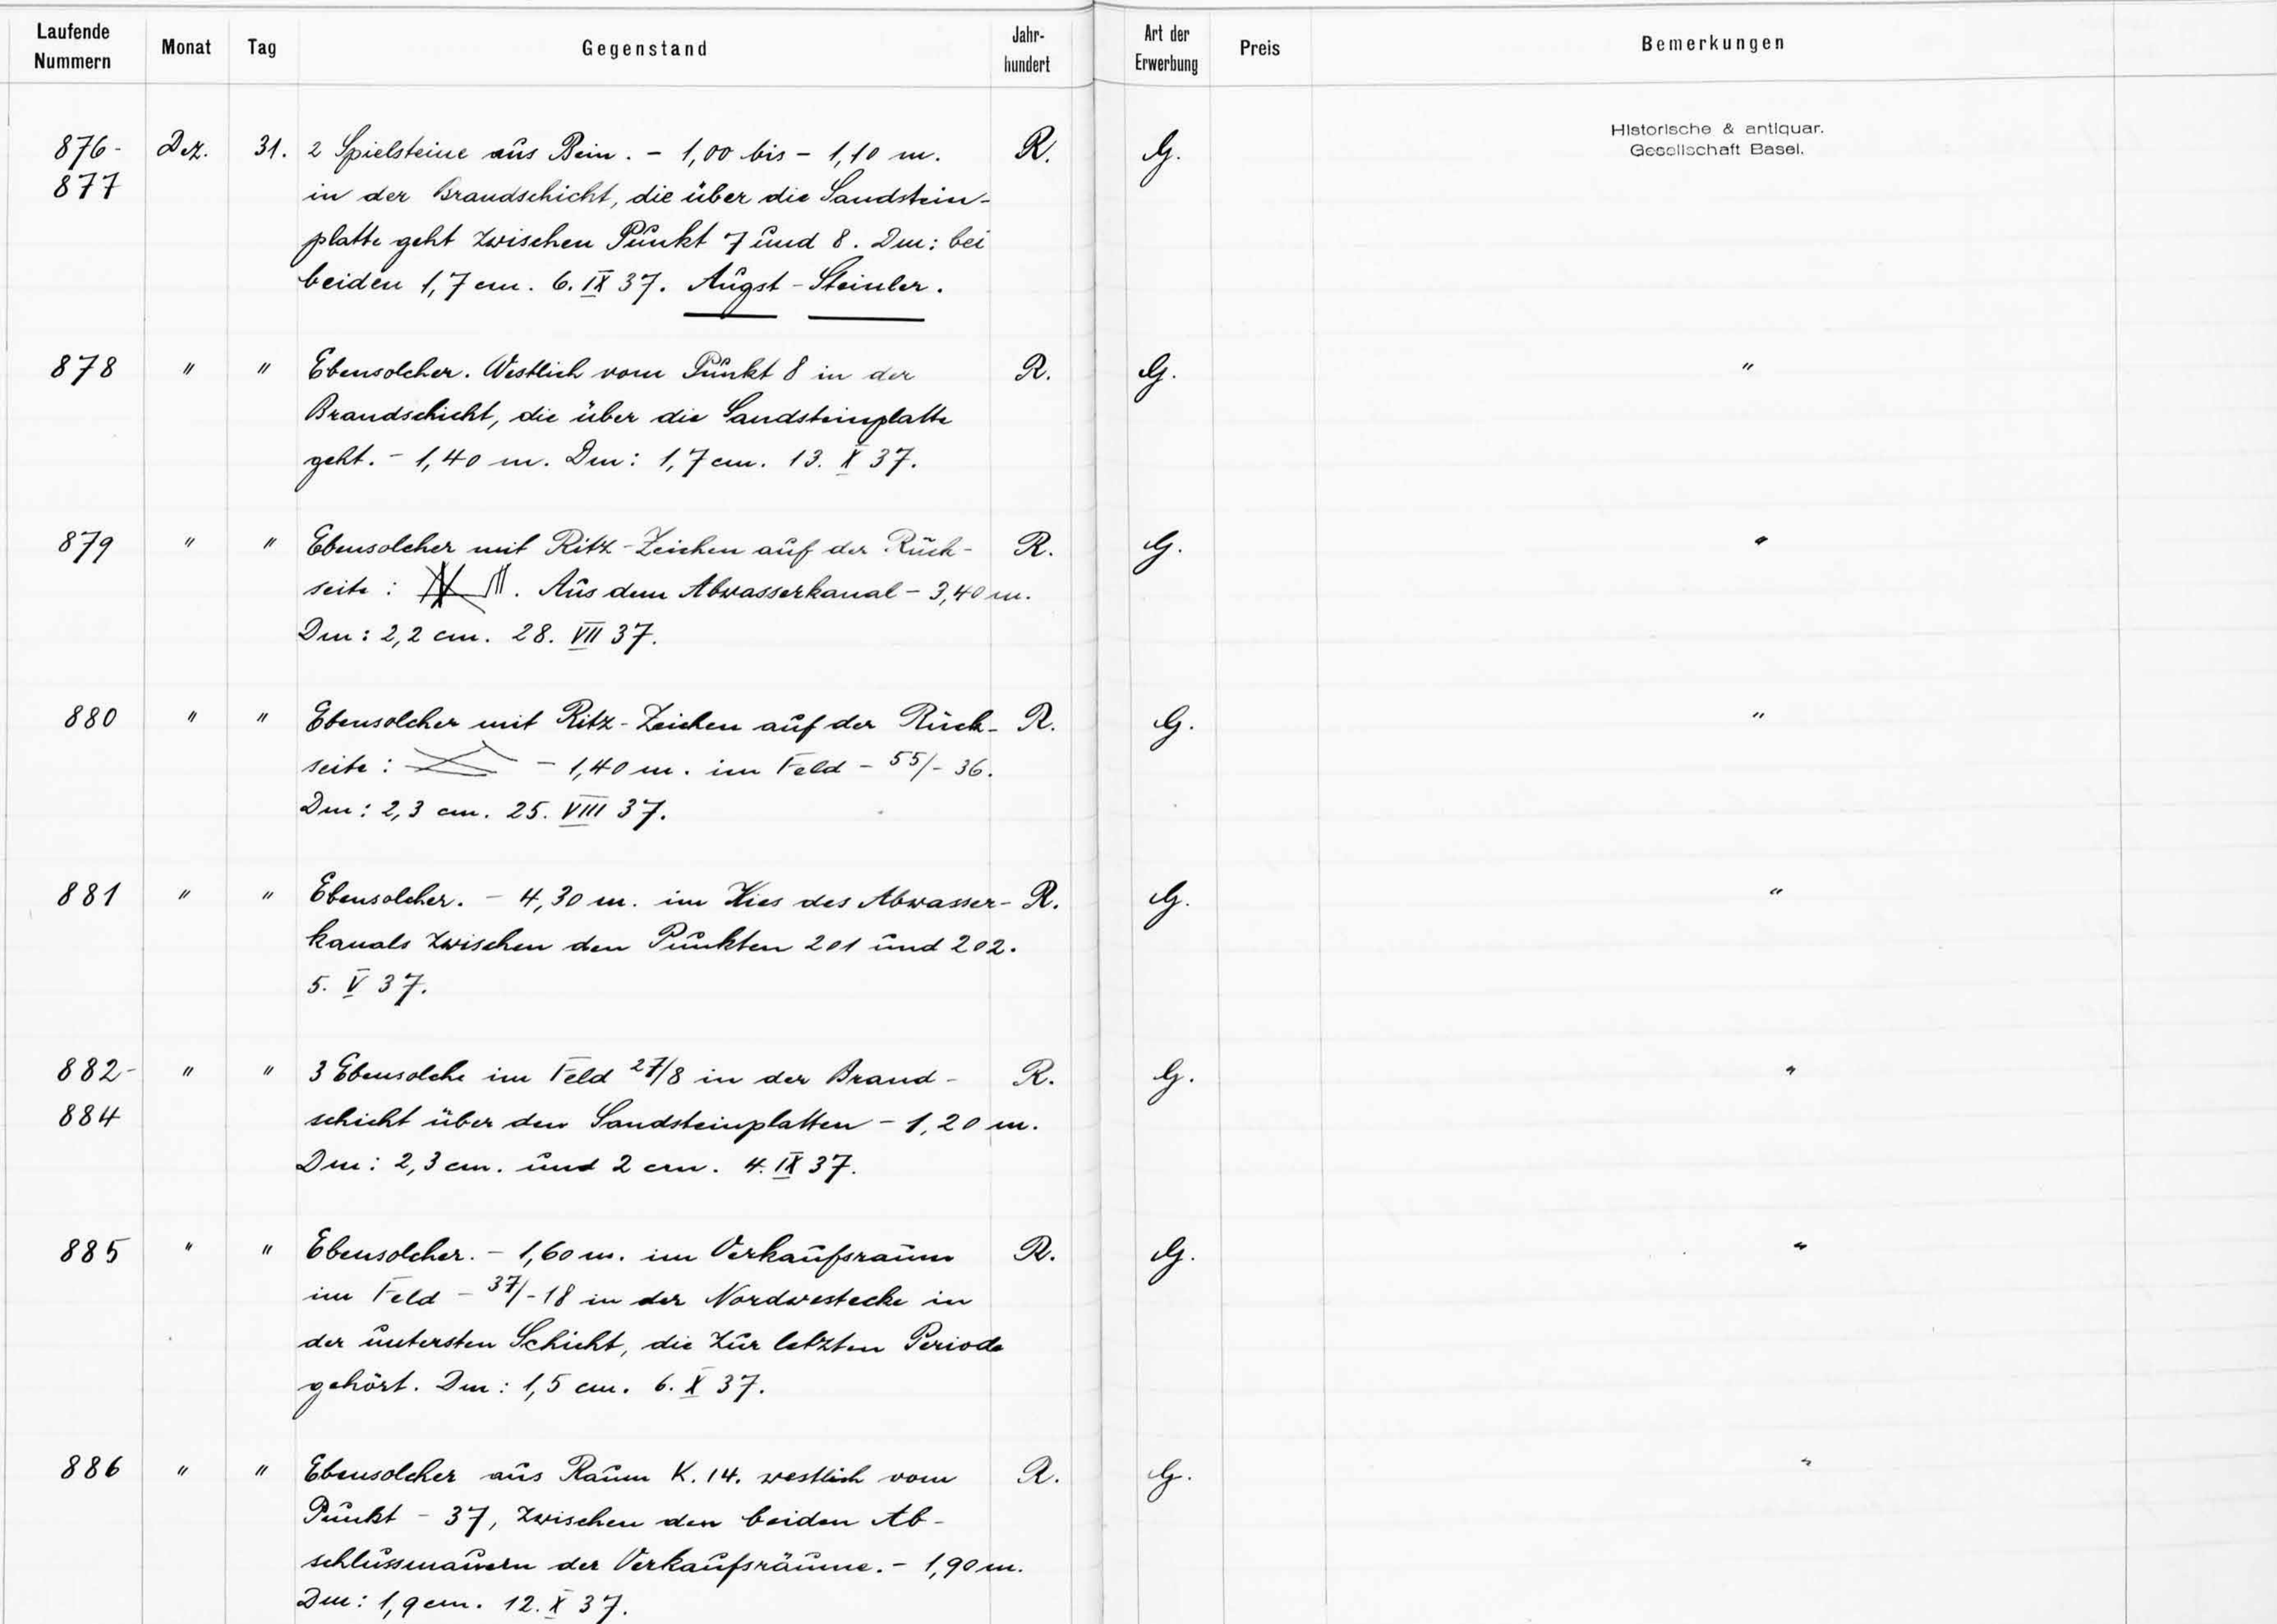 Laufende Nummern Monat Tag Gegenstand Jahr-hundert Art der Erwerbung Preis Bemerkungen
876- Dez. 31. 2 Spielsteine aus Bein. - 1,00 bis - 1,10 m. R. G. Historische & antiquar.
877 in der Brandschicht, die über die Sandstein- Gesellschaft Basel.
platte geht zwischen Punkt 7 und 8. Dm: bei
beiden 1,7 cm. 6. IX 37. Augst - Steinler.
878 " " Ebensolcher. Westlich vom Punkt 8 in der R. G. "
Brandschicht, die über die Sandsteinplatte
geht. - 1,40 m. Dm: 1,7 cm. 13. X 37.
879 " " Ebensolcher mit Ritz-Zeichen auf der Rück- R. G. "
seite : . Aus dem Abwasserkanal - 3,40 m.
Dm: 2,2 cm. 28. VII 37.
880 " " Ebensolcher mit Ritz-Zeichen auf der Rück- R. G. "
seite : - 1,40 m. im Feld - 55/- 36.
Dm: 2,3 cm. 25. VIII 37.
881 " " Ebensolcher. - 4,30 m. im Kies des Abwasser- R. G. "
kanals zwischen den Punkten 201 und 202.
5. V 37.
882- " " 3 Ebensolche im Feld 27/8 in der Brand- R. G. "
884 schicht über den Sandsteinplatten - 1,20 m.
Dm: 2,3 cm. und 2 cm. 4. IX 37.
885 " " Ebensolcher. - 1,60 m. im Verkaufsraum R. G. "
im Feld - 37/- 18 in der Nordwestecke in
der untersten Schicht, die zur letzten Periode
gehört. Dm: 1,5 cm. 6. X 37.
886 " " Ebensolcher aus Raum K. 14. westlich vom R. G. "
Punkt - 37, zwischen den beiden Ab-
schlussmauern der Verkaufsräume. - 1,90 m.
Dm: 1,9 cm. 12. X 37.